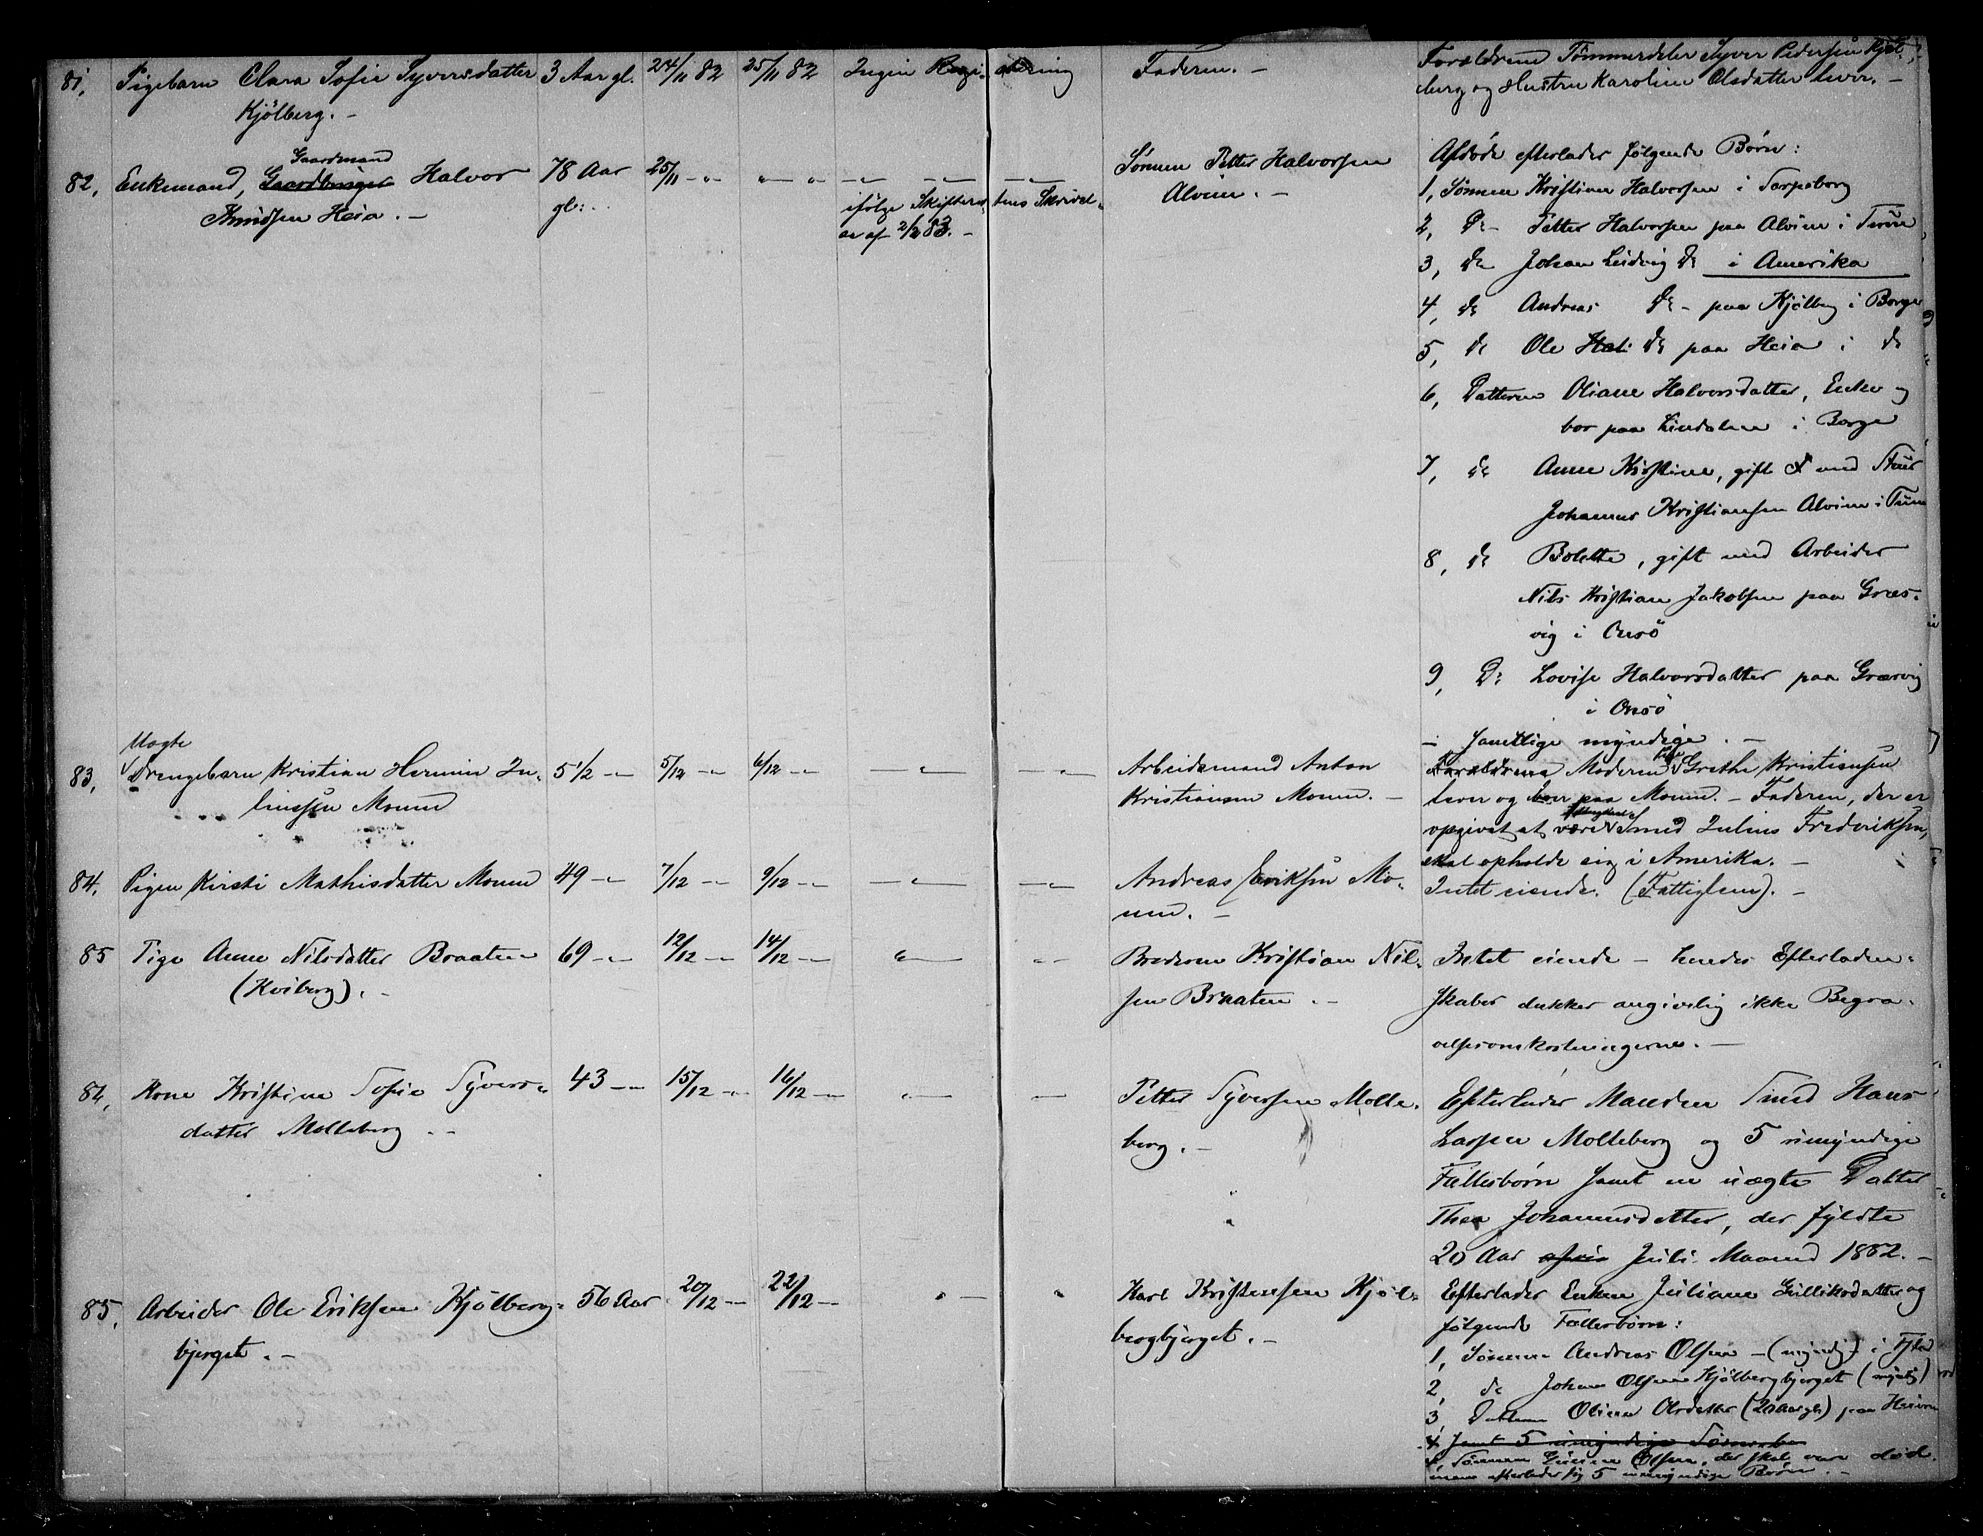 81, Pigebarn Clara Sofie Syversdatter 3 Aar gl. 24/11 82 25/11 82 Ingen Registrering Faderen. –
Kjölberg. –
Forældrene Tömmerdeler Syver Pedersen Kjöl-
berg og Hustru Karoline Olsdatter lever. –
82, Enkemand, Gaardbruger Halvor 78 Aar 25/11 - „ „ - „
Gaardmand
Knudsen Heia. – gl:
ifölge Skifteret- tens Skrivel-
se af 2/2 83. –
Sönnen Petter Halvorsen
Alvim. –
Afdöde efterlader fölgende Börn:
1, Sönnen Kristian Halvorsen i Sarpsborg
2, Do - Petter Halvorsen paa Alvim i Tune
3, do Johan Ludvig do i Amerika
4, do Andreas do - paa Kjölberg i Borge
5, do Ole Hal. do paa Heia i do
6, Datteren Oliane Halvorsdatter, Enke og
bor paa Lindalen i Borge
7, do Anne Kristine, gift med
Johannes Kristiansen Alvim i Tune
8, do Bolette, gift med Arbeider
Nils Kristian Jakobsen paa Græs-
vig i Onsö
9, Do Lovise Halvorsdatter paa Græsvig
i Onsö
– samtlige myndige. –
Uægte
83, Drengebarn Kristian Hermin Ju- 5 1/2 - „ 5/12 - „ 6/12 - „
liussen Moum
Arbeidsmand Anton
Kristiansen Moum. –
Forældrene Moderen Grethe Kristiansen
lever og bor paa Moum. – Faderen, der er
opgivet at være Smed Julius Frederiksen,
skal opholde sig i Amerika. –
84, Pigen Kirsti Mathisdatter Moum 49 - „ 7/12 - „ 9/12 - „
Andreas Eriksen Mo-
um. –
Intet eiende. (Fattiglem). –
85 Pige Anne Nilsdatter Braaten 69 - „ 12/12 - „ 14/12 - „
(Kviberg). –
Broderen Kristian Nil-
sen Braaten. –
Intet eiende – hendes Efterladen-
skaber dækker angivelig ikke Begra-
velsesomkostningerne. –
84, Kone Kristine Sofie Syvers- 43 - „ 15/12 - „ 16/12 - „
datter Molteberg. –
Petter Syversen Molte-
berg. –
Efterlader Manden Smed Hans
Larsen Molteberg og 5 umyndige
Fællesbörn samt en uægte Datter
Thea Johannesdatter, der fyldte
20 Aar Juli Maaned 1882. –
85, Arbeider Ole Eriksen Kjölberg- 56 Aar 20/12 - „ 22/12 - „
bjerget. –
Karl Kristensen Kjöl-
bergbjerget. –
Efterlader Enken Juliane Gulliksdatter og
fölgende Fællesbörn:
1, Sönnen Andreas Olsen – (myndig) i
2, do Johan Olsen Kjölbergbjerget (myndig)
3, Datteren Oline Olsdatter (20 Aar gl) paa
4 samt 5 umyndige
4 Sönnen Olsen, der skal være död.
men efterlader sig 5 umyndige Börn. –